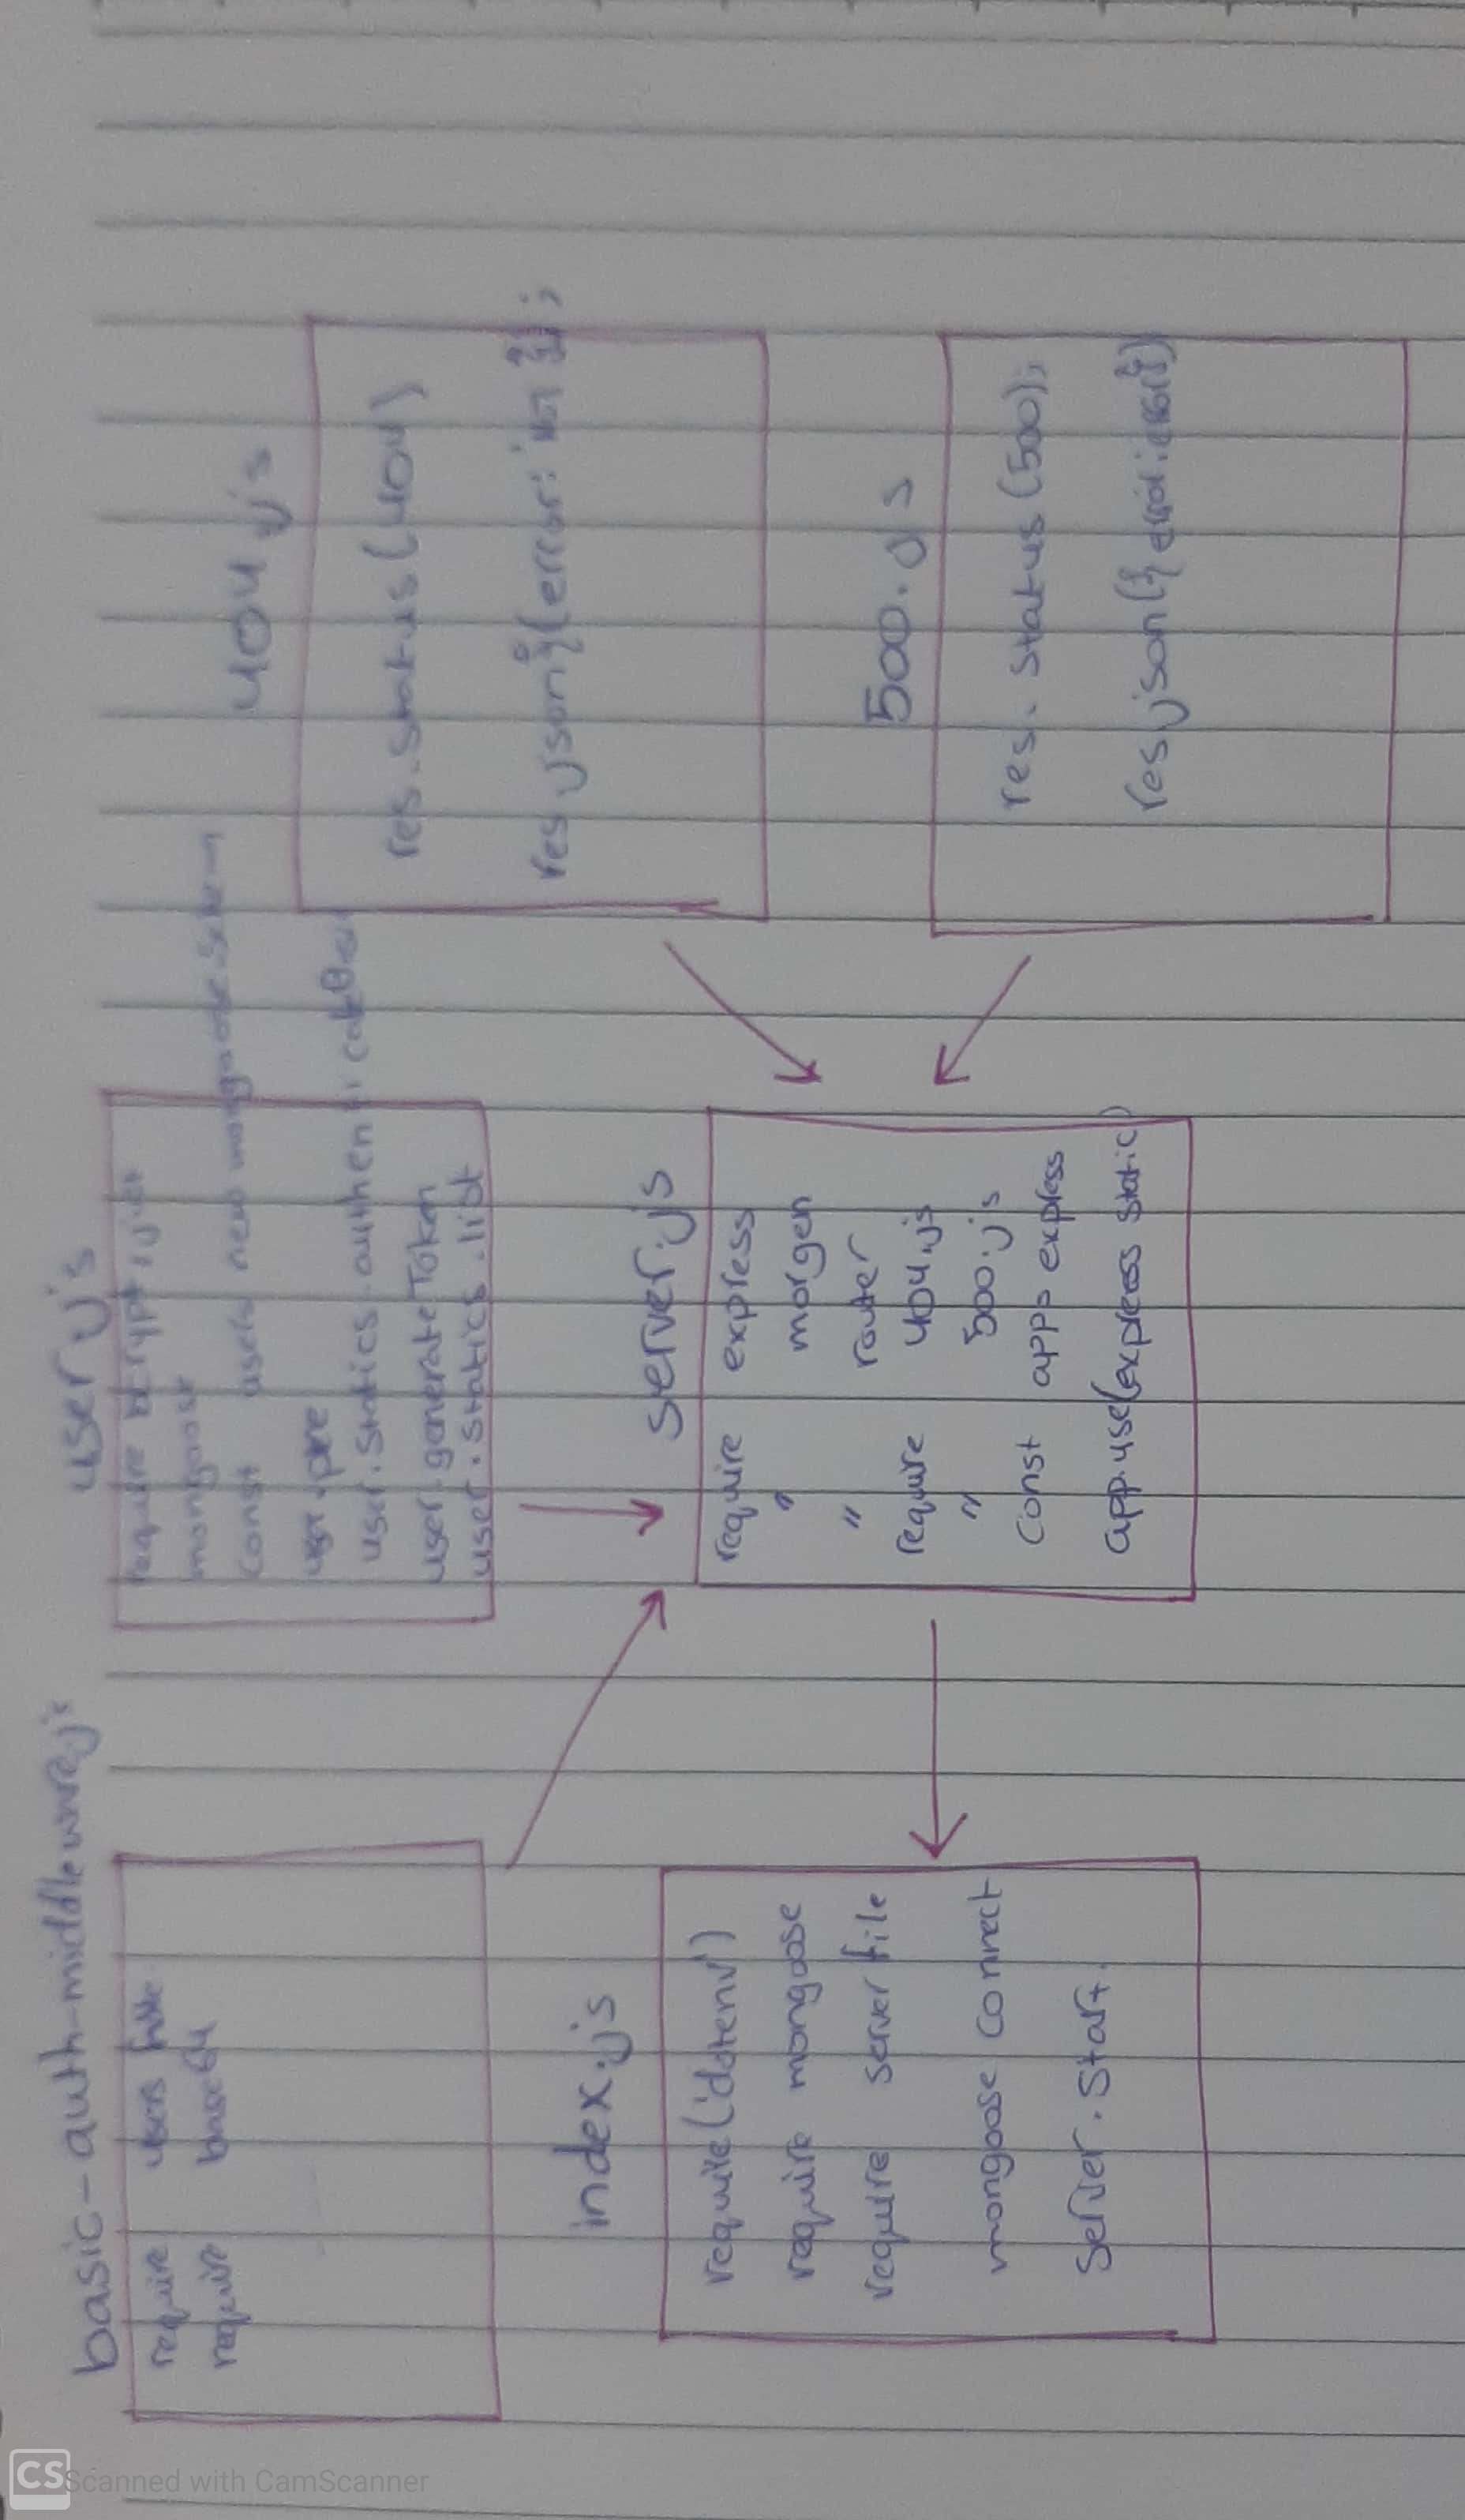 basic-auth-middleware.js
require users file
require base64
user.js
require bcrypt, jwt
mongoose
const users new mongoose.Schem
user.pre
user.statics.authenticateBasic
user.generateToken
user.statics.list
404.js
res.status(404)
res.json{(error: 'Not }};
index.js
require('dotenv')
require mongoose
require server file
mongoose connect
server.start.
server.js
require express
" morgen
" router
require 404.js
" 500.js
const app express
app.use(express static)
500.js
res.status(500);
res json({ error: error})
CS Scanned with CamScanner